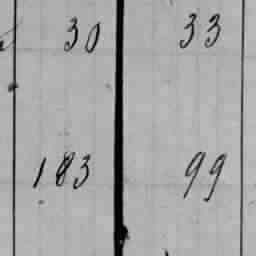 30 33
183 99